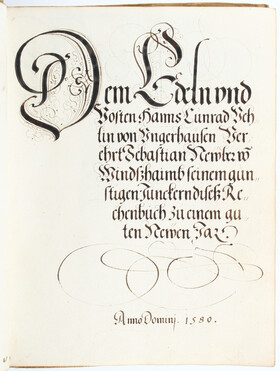 Dem Edeln vnd
Vosten Hanns Cunrad Veh
lin von Vngerhausen Ver
ehrt Sebastian Newber vō
Windßhaimb seinem gun
stigen Junckern diseß Re
chenbuch zu einem gu
ten Newen Jar
Anno Domini. 1580.